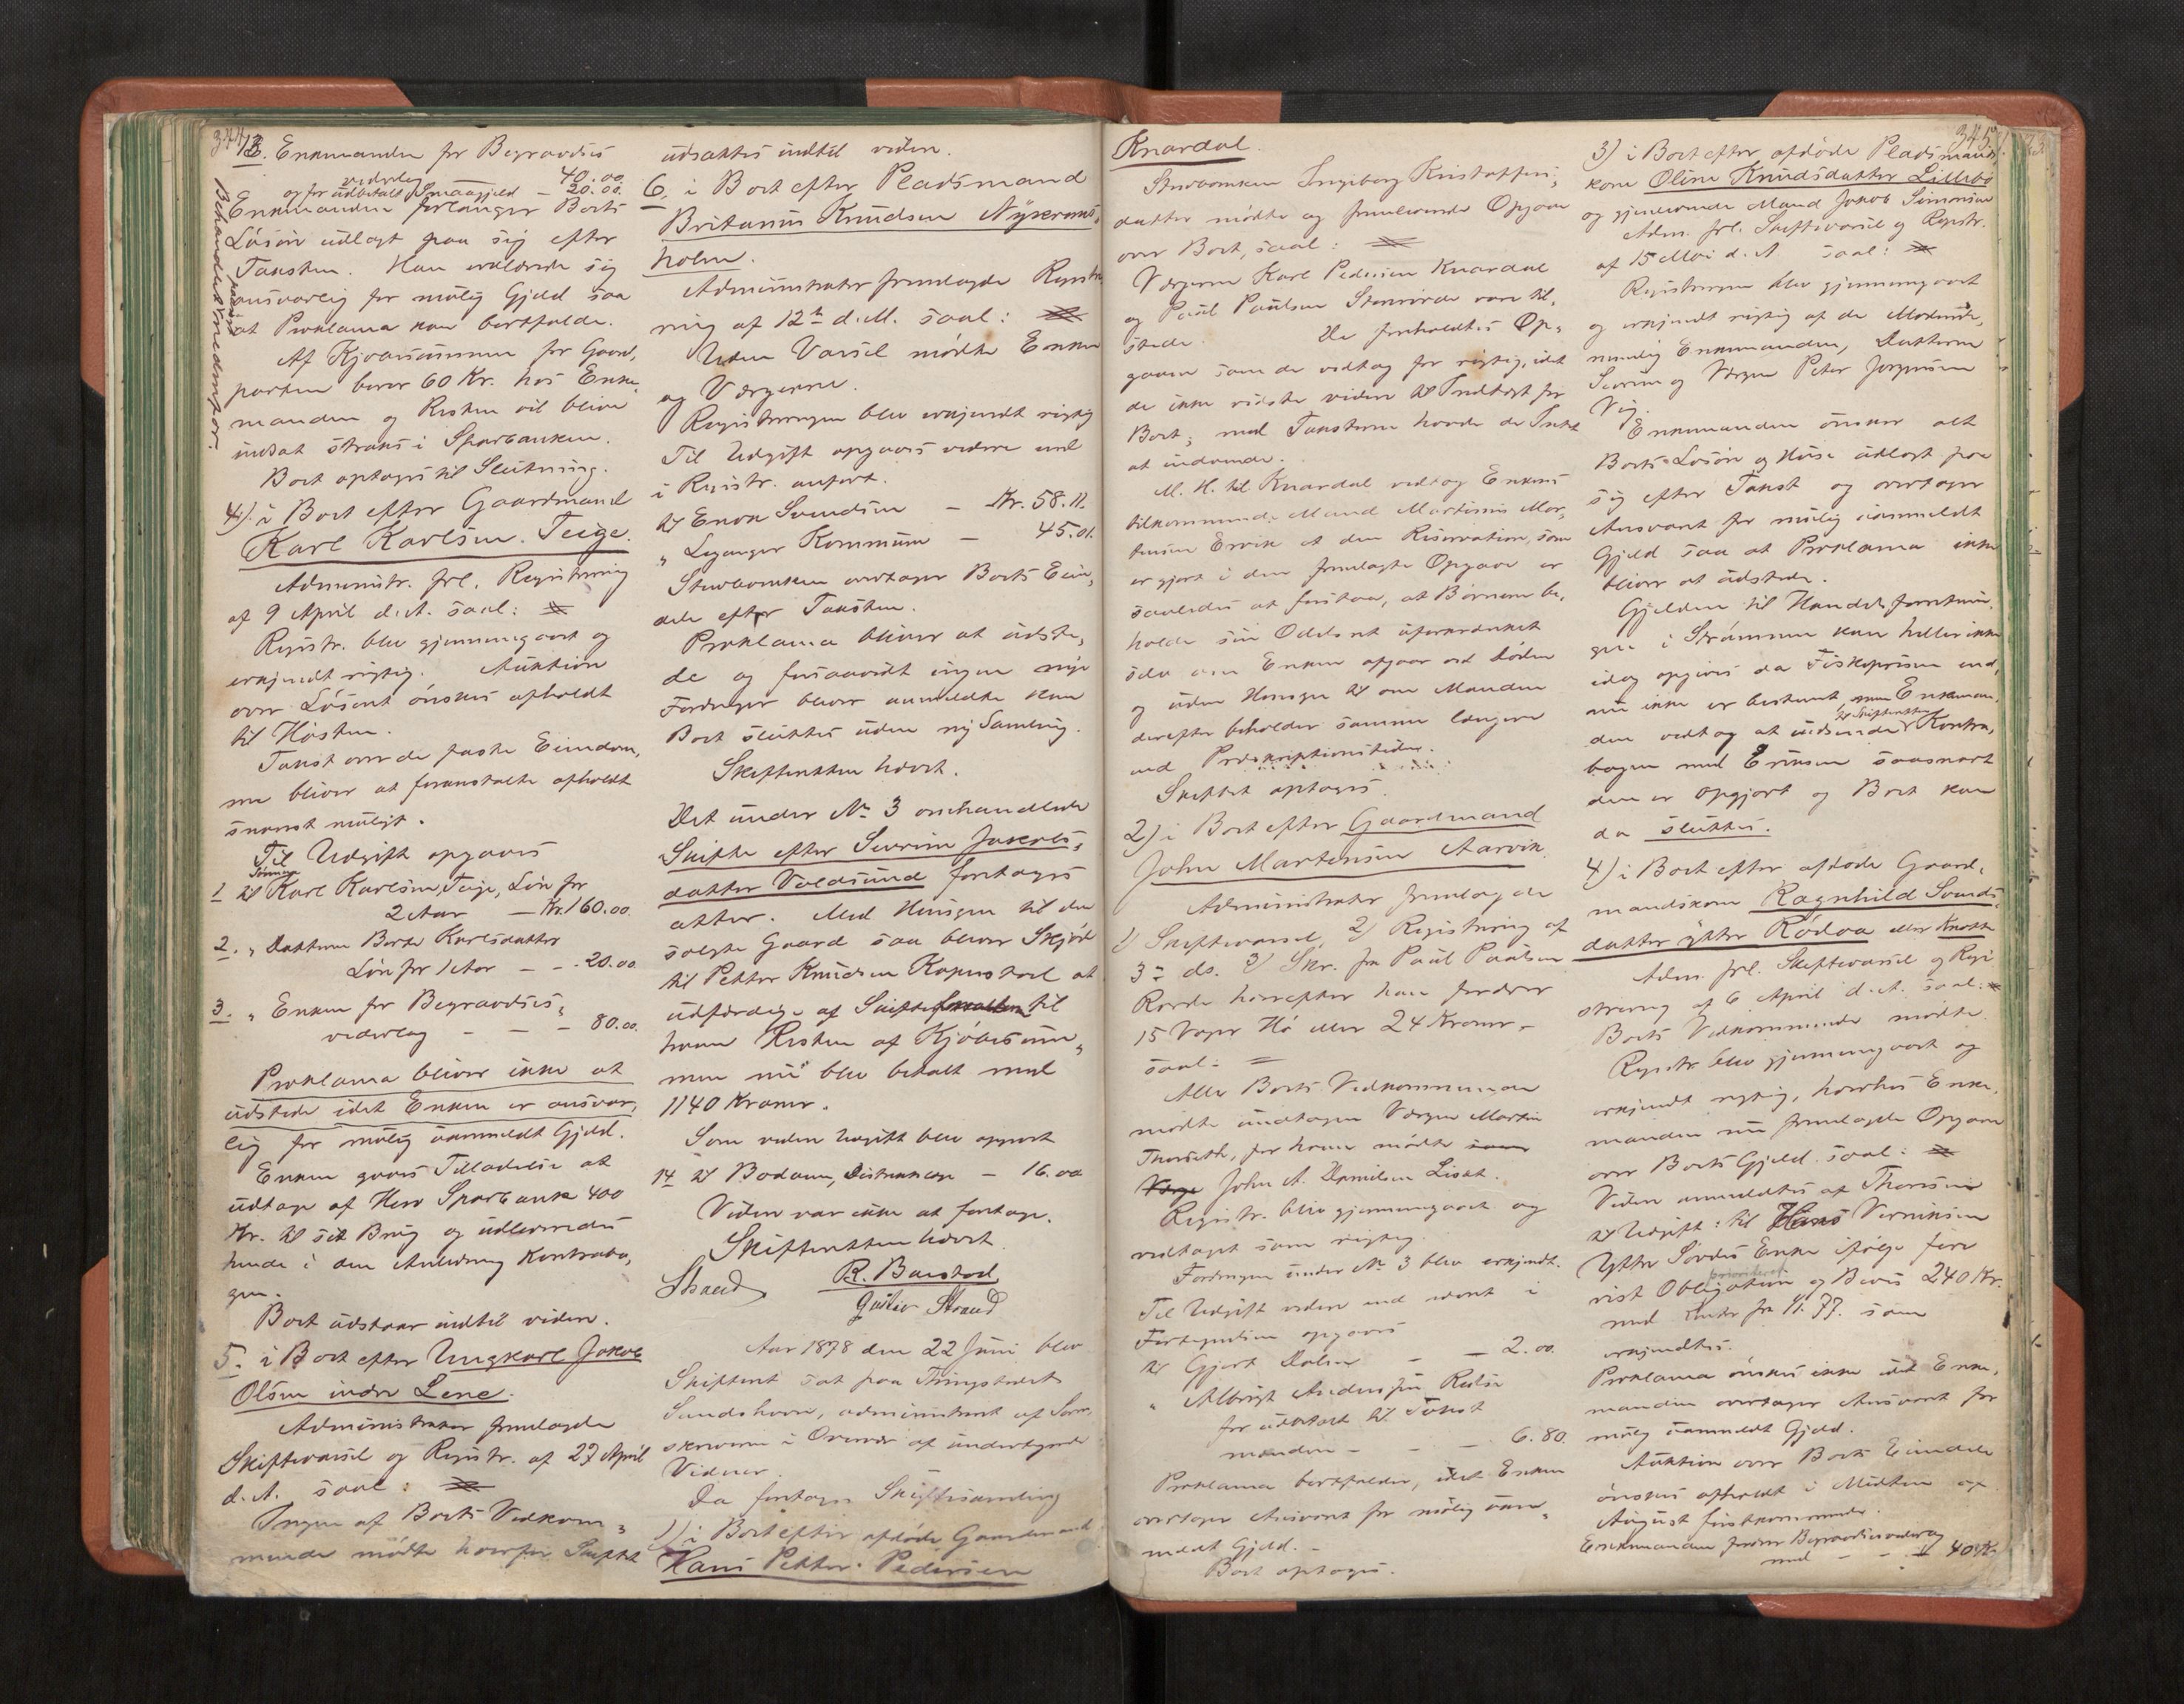 344
13. Enkemanden for Begravelses
vederlag 40.00.
og for udbetalt Smaagjeld - 20.00.
Enkemanden forlanger Boets
Løsøre udlagt paa sig efter
Taksten. Han erklærede sig
ansvarlig for mulig Gjeld saa
at Proklama kan bortfalde.
Af Kjøbesummen for Gaard,
parten beror 60 Kr. hos Enke,
manden og Resten vil blive
indsat straks i Sparbanken.
Boet optages til Slutning.
Behandlet nedenfor.
4). i Boet efter Gaardmand
Karl Karlsen Teige.
Administr. frl. Registrering
af 9 April d. A. saal:
Registr. blev gjennemgaaet og
erkjendt rigtig. Auktion
over Løsøret ønskes afholdt
til Høsten.
Takst over de faste Eiendom,
me bliver at foranstalte afholdt
snarest muligt.
Til Udgift opgaves
1 til Sønnen Karl Karlsen Teige, Løn for
2 Aar - Kr. 160.00.
2. " Datteren Berte Karlsdatter
Løn for 1 Aar - - 20.00
3. " Enken for Begravelses,
vederlag - - - 80.00.
Proklama bliver ikke at
udstede idet Enken er ansvar,
lig for mulig uanmeldt Gjeld.
Enken gaves Tilladelse at
udtage af Herø Sparbank 400
Kr. til sit Brug og udleveredes
hende i den Anledning Kontrabo,
gen.
Boet udstaar indtil videre.
5. i Boet efter Ungkarl Jakob
Olsen indre Lene.
Administrator fremlagde
Skiftevarsel og Registr. af 27 April
d. A. saal:
Ingen af Boets Vedkom,
mende mødte hvorfor Skiftet
udsattes indtil videre.
6. i Boet efter Pladsmand
Britanus Knudsen Myhrens,
holm.
Administrator fremlagde Registre,
ring af 12te d. M. saal:
Uden Varsel mødte Enken
og Værgerne.
Registreringen blev erkjendt rigtig
Til Udgift opgaves videre end
i Registr. anført.
til Enok Svendsen - Kr. 58.11.
" Leganger Kommune - 45.01.
Stervboenken overtager Boets Eien,
dele efter Taksten.
Proklama bliver at udste,
de og forsaavidt ingen nye
Fordringer bliver anmeldte kan
Boet sluttes uden ny Samling.
Skifteretten hævet.
Det under No 3 omhandlede
Skifte efter Severine Jakobs,
datter Voldsund foretages
atter. Med Hensyn til den
solgte Gaard saa bliver Skjøde
til Petter Knudsen Kopperstad at
udfærdige af Skifteforvalteren til
hvem Resten af Kjøbesum,
men nu blev betalt med
1140 Kroner.
Som videre Udgift blev opgivet
14 til Bodom, Distriktslæge - 16.00
Videre var ikke at foretage.
Skifteretten hævet.
R. Baustad
Gustav Strand
Aar 1878 den 22 Juni blev
Skifteret sat paa Thingstedet
Sandshavn, administreret af Sorn,
skriveren i Overvær af undertegnede
Vidner.
Da foretoges Skiftesamling
1) i Boet efter afdøde Gaardmand
Hans Petter Pedersen
345
Knardal.
Stervboenken Ingeborg Kristoffers,
datter mødte og fremleverede Opgave
over Boet, saal:
Værgerne Karl Pedersen Knardal
og Paul Paulsen var til,
stede. De foreholdtes Op,
gaven som de vedtog for rigtig, idet
de ikke vidste videre til Indtægt for
Boet; mod Taksterne havde de Intet
at indvende.
M. H. til Knardal vedtog Enkens
tilkommende Mand Martinus Mor,
tensen Ervik at den Reservation, som
er gjort i den fremlagte Opgave er
saaledes at forstaa, at Børnene be,
holde sin Odelsret uforkrænket
selv om Enken afgaar ved Døden
og uden Hensyn til om Manden
derefter beholder samme længere
end Præskriptionstiden.
Skiftet optages.
2) i Boet efter Gaardmand
John Martinsen Aarvik
Administrator fremlagde
1) Skiftevarsel, 2) Registrering af
3die ds. 3) Skr. fra Paul Paulsen
Rovde hvorefter han fordrer
15 Voger Hø eller 24 Kroner -
saal:
Alle Boets Vedkommende
mødte undtagen Værgen Martin
, for ham mødte som
Værge John A. Danielsen Liset.
Registr. blev gjennemgaaet og
vedtaget som rigtig.
Fordringen under No 3 blev erkjendt.
Til Udgift videre end nævnt i
Fortegnelsen opgaves
til Gjert Dalen - - 2.00.
" Albrigt Andersen
for udbetalt til Takst
manden - - - 6.80.
Proklama bortfalder, idet Enken
overtager Ansvaret for mulig uan,
meldt Gjeld. -
Boet optages.
3) i Boet efter afdøde Pladsmands
kone Oline Knudsdatter Lillebø
og gjenlevende Mand Jakob Simonsen
Adm. frl. Skiftevarsel og Registr.
af 15 Mai d. A. saal:
Registreringen blev gjennemgaaet
og erkjendt rigtig af de Mødende,
nemlig Enkemanden, Datteren
Severine og Værgen Peter Jørgensen
Vig.
Enkemanden ønsker alt
Boets Løsøre og Huse udlagt paa
sig efter Takst og overtager
Ansvaret for mulig uanmeldt
Gjeld saa at Proklama ikke
bliver at udstede.
Gjelden til Handelsforretnin,
gen i Strømmen kan heller ikke
idag opgives da Fiskeprisen end,
nu ikke er bestemt, men Enkeman,
den vedtog at indsende til Skifteretten Kontra,
bogen med Eriksen saasnart
den er opgjort og Boet kan
da sluttes.
4) i Boet efter afdøde Gaard,
mandskone Ragnhild Svends,
datter ytter Rødvæ eller
Adm. frl. Skiftevarsel og Regi
strering af 6 April d. A. saal:
Boets Vedkommende mødte.
Registr. blev gjennemgaaet og
erkjendt rigtig, hvorhos Enke,
manden nu fremlagde Opgave
over Boets Gjeld. saal:
Videre anmeldtes af Thoresen
til Udgift: til Hans Verniksen
Ytter Enke ifølge fore
vist prioriteret Obligation og Bevis 240 Kr.
med Renter fra 11. 77. som
erkjendtes.
Proklama ønskes ikke idet Enke,
manden overtager Ansvaret for
mulig uanmeldt Gjeld.
Auktion over Boets Eiendele
ønskes afholdt i Midten af
August førstkommende.
Enkemanden fordrer Begravelsesvederlag
med - - - 40 Kr.